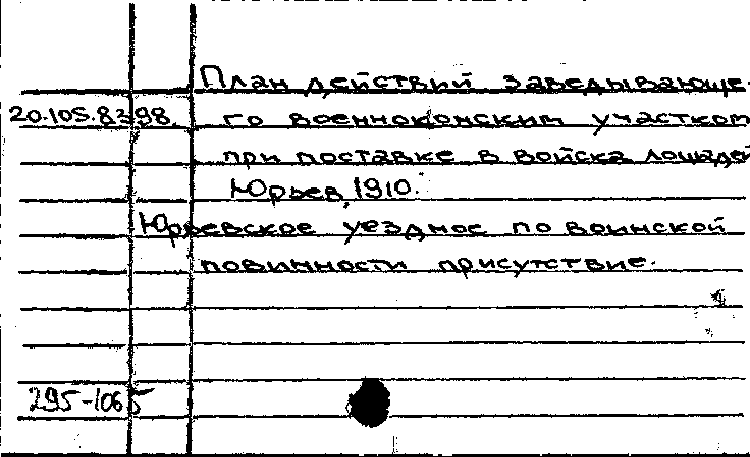 План действий заведывающе-
20.105.8398 го военноконским участком
при поставке в войска лошадей
Юрьев, 1910.
Юрьевское уездное по воинской
повинности присутствие.
295-1065